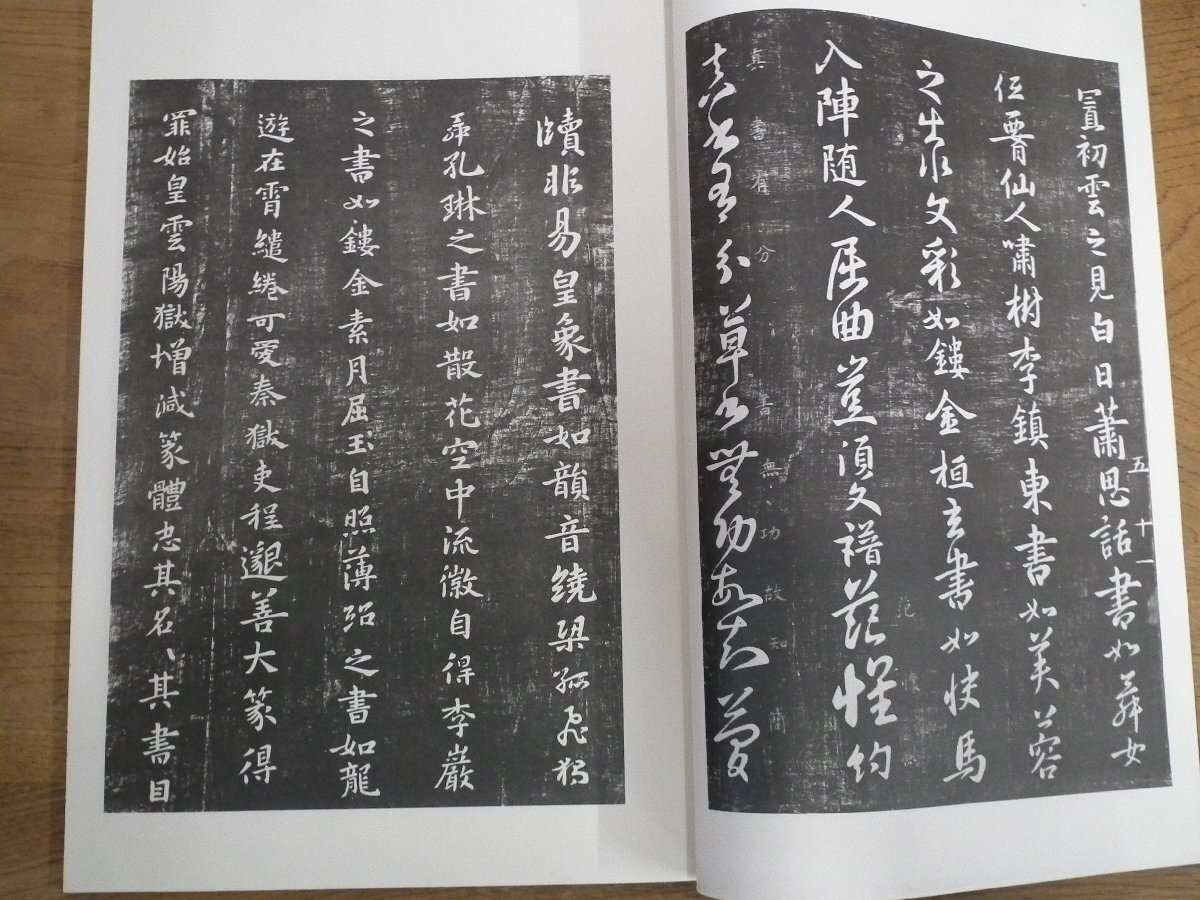 置初雲之見白日蕭思話書如舞女
五 十一
低腰仙人嘯樹李鎮東書如美容
之出水文彩如鏤金桓玄書如快馬
入陣随人屈曲豈須文譜范懌約
真書有分草書無功故知簡
真書有分 書無、功故知簡
牘非易皇象書如韻音繞梁孤飛獨
舞孔琳之書如散花空中流徽自得李巖
之書如鏤金素月屈玉自照薄紹之書如龍
遊在霄繾綣可愛秦獄吏程邈善大篆得
罪始皇雲陽獄增減篆體忠其名、其書目